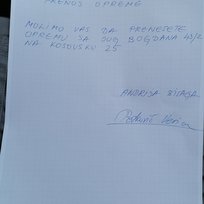 PRENOS OPREME
MOLIMO VAS DA PRENESETE
OPREMU SA JUG BOGDANA 43/2
NA KOSOVSKU 25
ANDRIJA